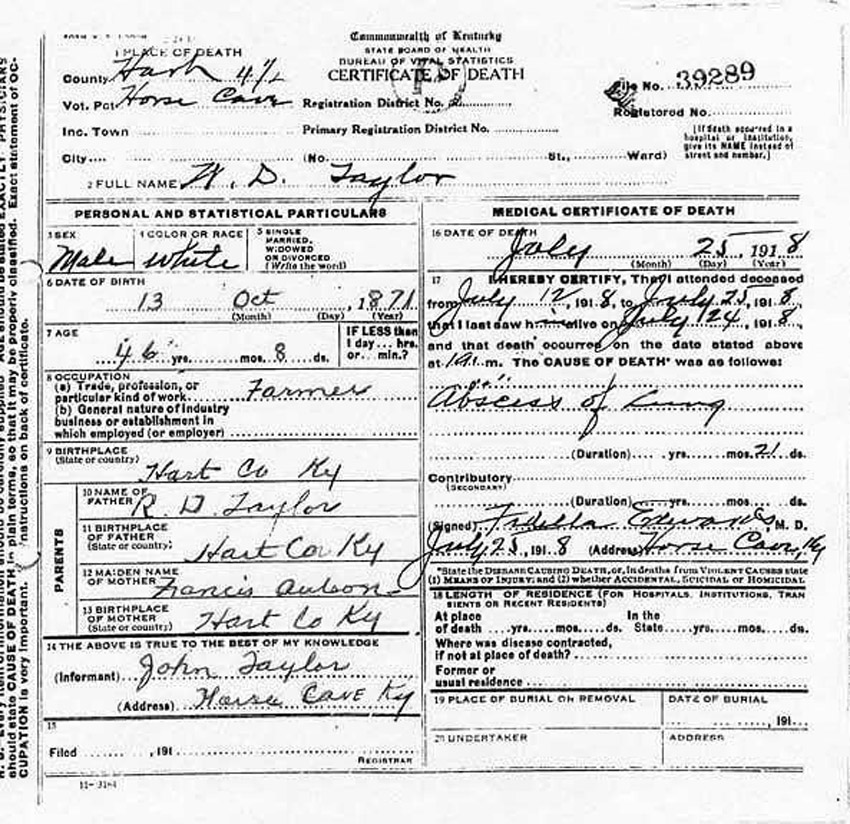 Commonwealth of Kentucky
STATE BOARD OF HEALTH
BUREAU OF VITAL STATISTICS
CERTIFICATE OF DEATH
1 PLACE OF DEATH
County Hart
Vot. Pct Horse Cave
Inc. Town
City
Registration District No.
Primary Registration District No.
(No. St., Ward)
File No. 39289
Registered No.
(If death occurred in a
hospital or institution,
give its NAME instead of
street and number.)
2 FULL NAME W. D. Taylor
PERSONAL AND STATISTICAL PARTICULARS
3 SEX
Male
4 COLOR OR RACE
White
5 SINGLE
MARRIED,
WIDOWED
OR DIVORCED
(Write the word)
6 DATE OF BIRTH
13 Oct , 1871
(Month) (Day) (Year)
7 AGE
46 yrs. mos. 8 ds.
IF LESS than
1 day... hrs.
or... min.?
8 OCCUPATION
(a) Trade, profession, or
particular kind of work Farmer
(b) General nature of industry
business or establishment in
which employed (or employer)
9 BIRTHPLACE
(State or country)
Hart Co Ky
PARENTS
10 NAME OF
FATHER R. D. Taylor
11 BIRTHPLACE
OF FATHER
(State or country)
Hart Co Ky
12 MAIDEN NAME
OF MOTHER Francis
13 BIRTHPLACE
OF MOTHER
(State or country)
Hart Co Ky
14 THE ABOVE IS TRUE TO THE BEST OF MY KNOWLEDGE
(Informant) John Taylor
(Address) Horse Cave Ky
15
Filed , 191
REGISTRAR
11-3184
MEDICAL CERTIFICATE OF DEATH
16 DATE OF DEATH
July 25, 1918
(Month) (Day) (Year)
17 I HEREBY CERTIFY, That I attended deceased
from July 12, 1918, to July 25, 1918,
that I last saw him alive on July 24, 1918,
and that death occurred on the date stated above
at m. The CAUSE OF DEATH* was as follows:
Abscess of Lung
(Duration) yrs. mos. 21 ds.
Contributory
(SECONDARY)
(Duration) yrs. mos. ds.
(Signed) Edwards M. D.
July 25, 1918 (Address) Horse Cave, Ky
*State the DISEASE CAUSING DEATH, or, in deaths from VIOLENT CAUSES state
(1) MEANS OF INJURY; and (2) whether ACCIDENTAL, SUICIDAL OR HOMICIDAL
18 LENGTH OF RESIDENCE (FOR HOSPITALS, INSTITUTIONS, TRAN
SIENTS OR RECENT RESIDENTS)
At place In the
of death yrs. mos. ds. State yrs. mos. ds.
Where was disease contracted,
if not at place of death?
Former or
usual residence
19 PLACE OF BURIAL OR REMOVAL
DATE OF BURIAL
, 191
20 UNDERTAKER
ADDRESS
should state CAUSE OF DEATH in plain terms, so that it may be properly classified. Exact statement of OC-
CUPATION is very important.